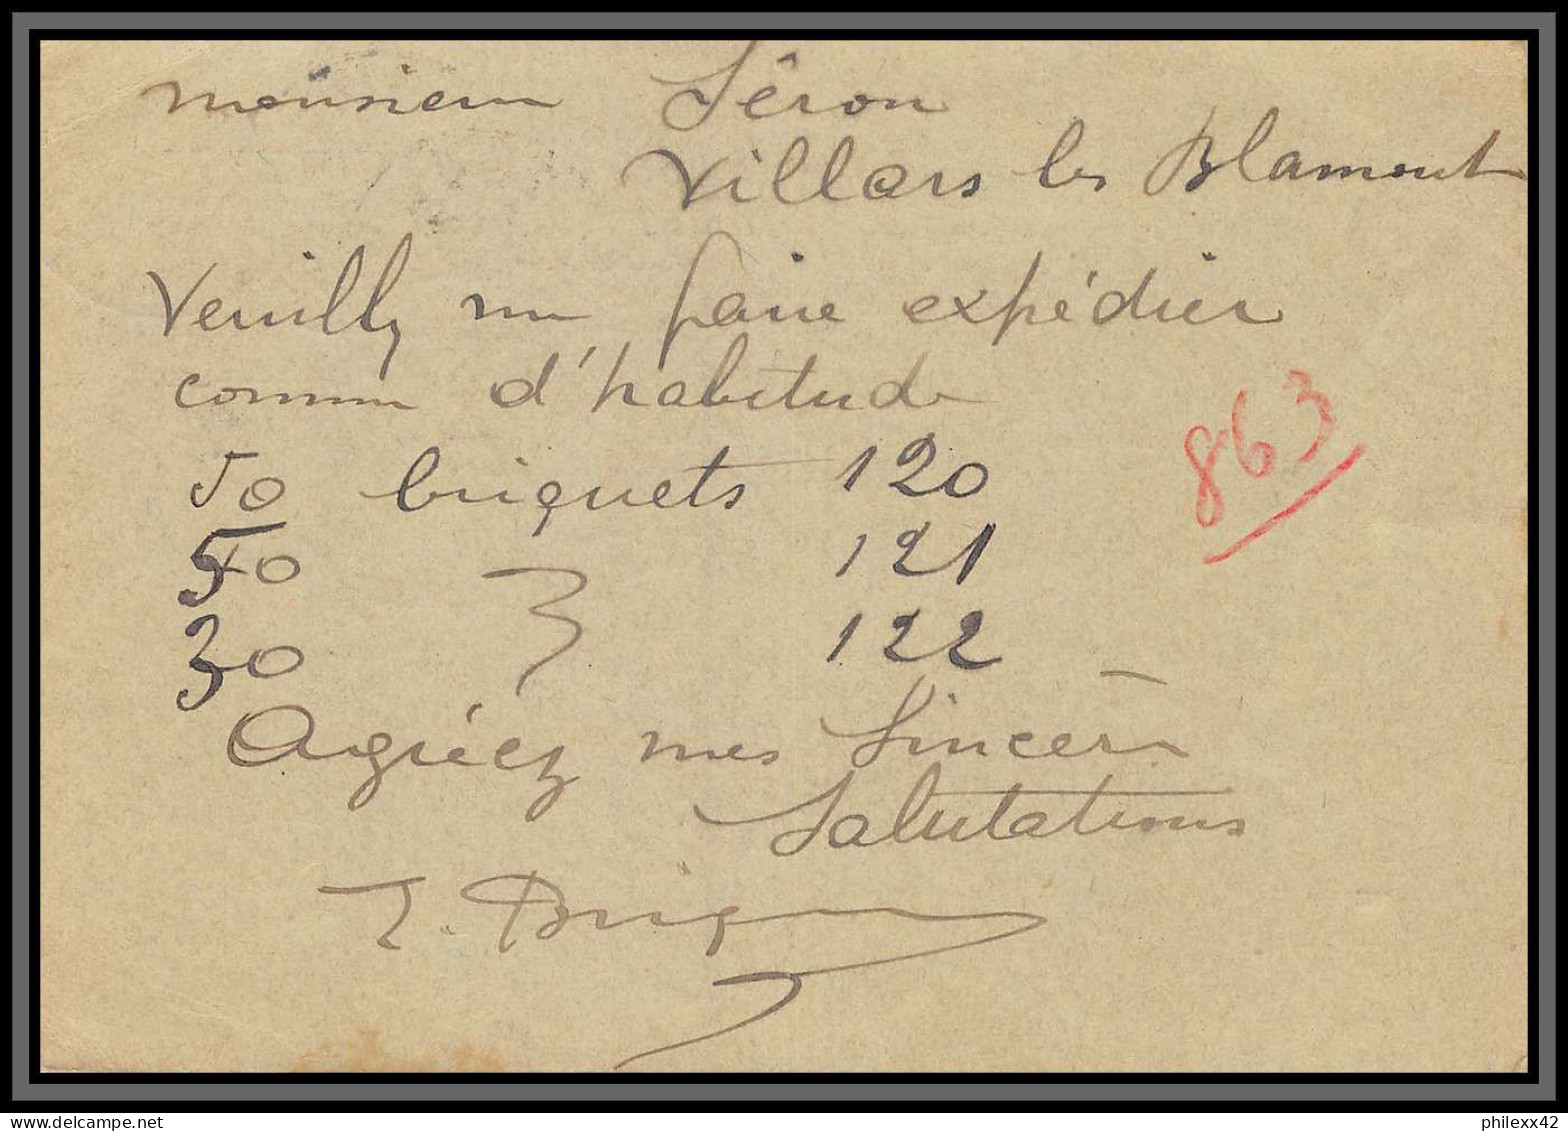 monsieur Séron
Villars les Blamont
Veuillez me faire expédier
comme d'habitude
863
50 briquets 120
50 121
30 122
Agréez mes Sincères
Salutations
delcampe.net
philexx42